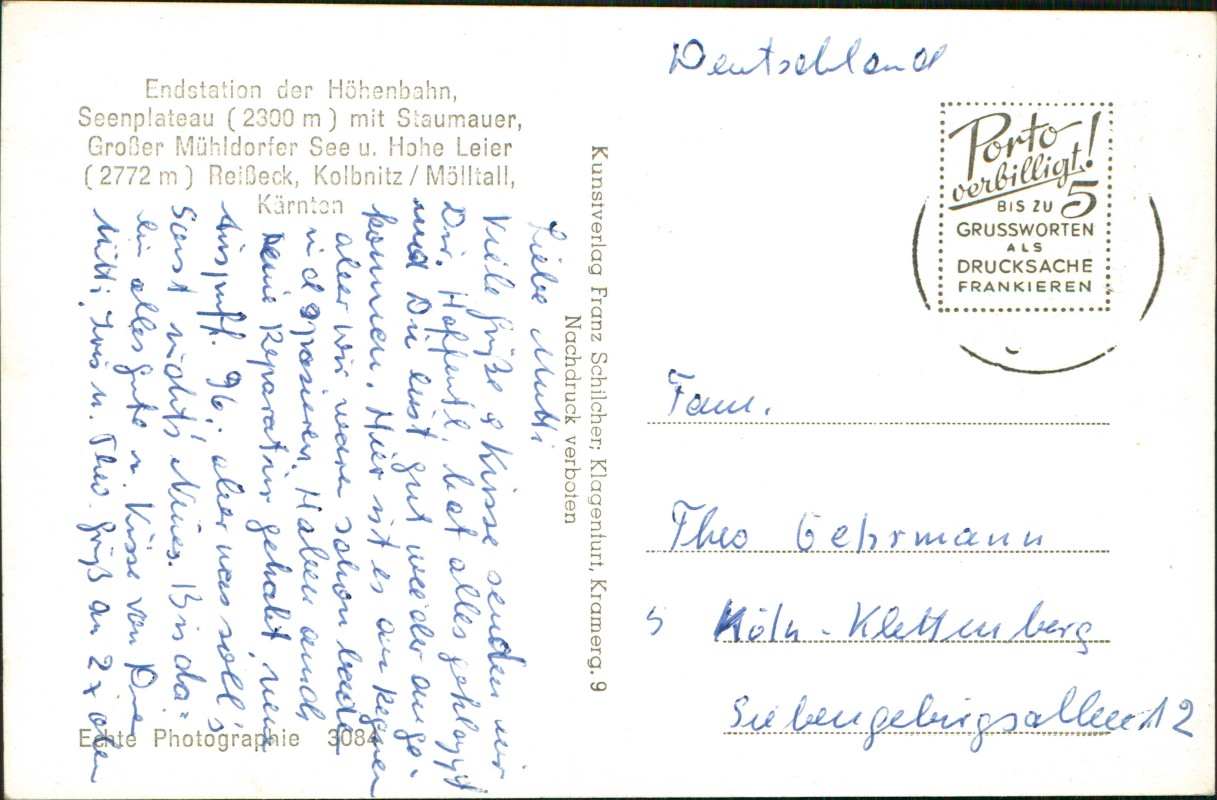 Endstation der Höhenbahn,
Seenplateau (2300 m) mit Staumauer,
Großer Mühldorfer See u. Hohe Leier
(2772 m) Reißeck, Kolbnitz/Mölltall,
Kärnten
Liebe Mutti
Viele Grüße & Küsse senden wir
Dir. Hoffentl. hat alles geklappt
und Du bist gut wieder ange-
kommen. Hier ist es am regnen
aber wir waren schon baden
und spazieren. Haben auch
Reparatur gehabt, neuer
Auspuff. 96,- aber was soll's
Sonst nichts Neues. Bis da-
hin alles gute u. Küsse von Die
Mutti, u. Theo. Gruß an 2 x oben
Echte Photographie 3084
Kunstverlag Franz Schilcher; Klagenfurt, Kramerg. 9
Nachdruck verboten
Deutschland
Porto
verbilligt!
BIS ZU 5
GRUSSWORTEN
ALS
DRUCKSACHE
FRANKIEREN
Fam.
Theo Gehrmann
5 Köln-Klettenberg
Siebengebirgsallee 12